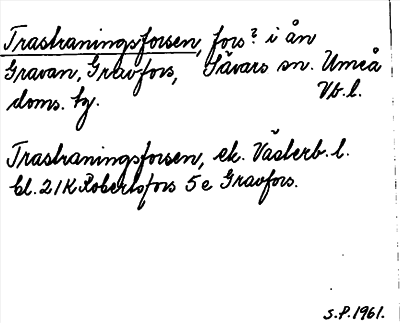 Trastraningsforsen, fors? i ån
Gravan, Gravfors, Sävars sn. Umeå
doms. hg. Vb. l.
Trastraningsforsen, ek. Västerb. l.
bl. 21K Robertsfors 5e Gravfors.
S.P. 1961.